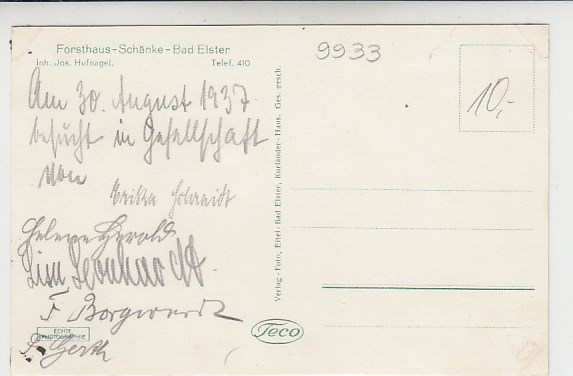 Forsthaus-Schänke-Bad Elster
Inh. Jos. Hufnagel. Telef. 410
9933
10,-
Am 30. August 1937
besucht in Gesellschaft
von
Erika Schmidt
Helene Herold
Lisa Leonhardt
F. Borgwardt
Gerth
ECHTE
PHOTOGRAPHIE
Verlag-Foto, Eitel-Bad Elster, Kurländer-Haus. Ges. gesch.
Teco